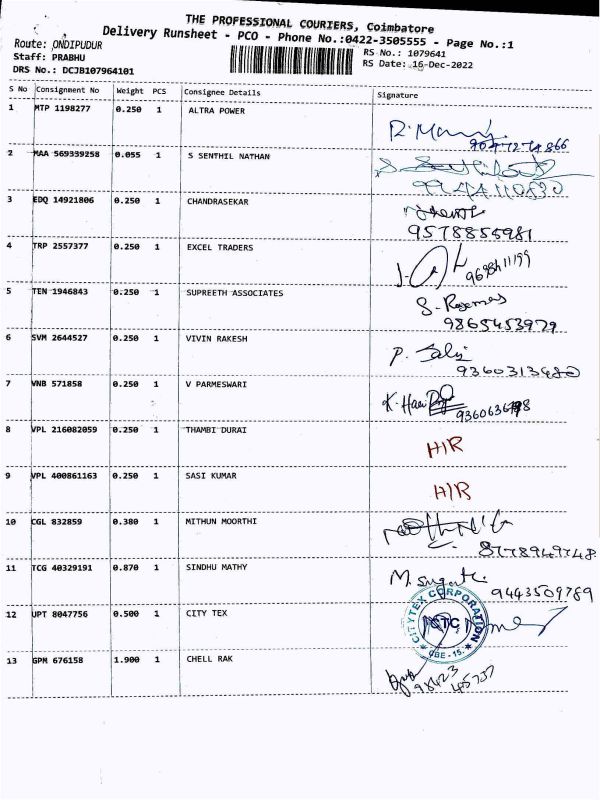 THE PROFESSIONAL COURIERS, Coimbatore
Delivery Runsheet - PCO - Phone No.:0422-3505555 - Page No.:1
Route: ONDIPUDUR
Staff: PRABHU
DRS No.: DCJB107964101
RS No.: 1079641
RS Date: 16-Dec-2022
S No Consignment No Weight PCS Consignee Details Signature
1 MTP 1198277 0.250 1 ALTRA POWER
2 MAA 569339258 0.055 1 S SENTHIL NATHAN
9944110830
3 EDQ 14921806 0.250 1 CHANDRASEKAR
9578855981
4 TRP 2557377 0.250 1 EXCEL TRADERS
5 TEN 1946843 0.250 1 SUPREETH ASSOCIATES
9865453979
6 SVM 2644527 0.250 1 VIVIN RAKESH
9360313480
7 VNB 571858 0.250 1 V PARMESWARI
K. Hari
8 VPL 216082059 0.250 1 THAMBI DURAI
H/R
9 VPL 400861163 0.250 1 SASI KUMAR
H/R
10 CGL 832859 0.380 1 MITHUN MOORTHI
8778949748
11 TCG 40329191 0.870 1 SINDHU MATHY
9443509789
12 UPT 8047756 0.500 1 CITY TEX
CITYTEX CORPORATION
CBE - 15.
13 GPM 676158 1.900 1 CHELL RAK
98423